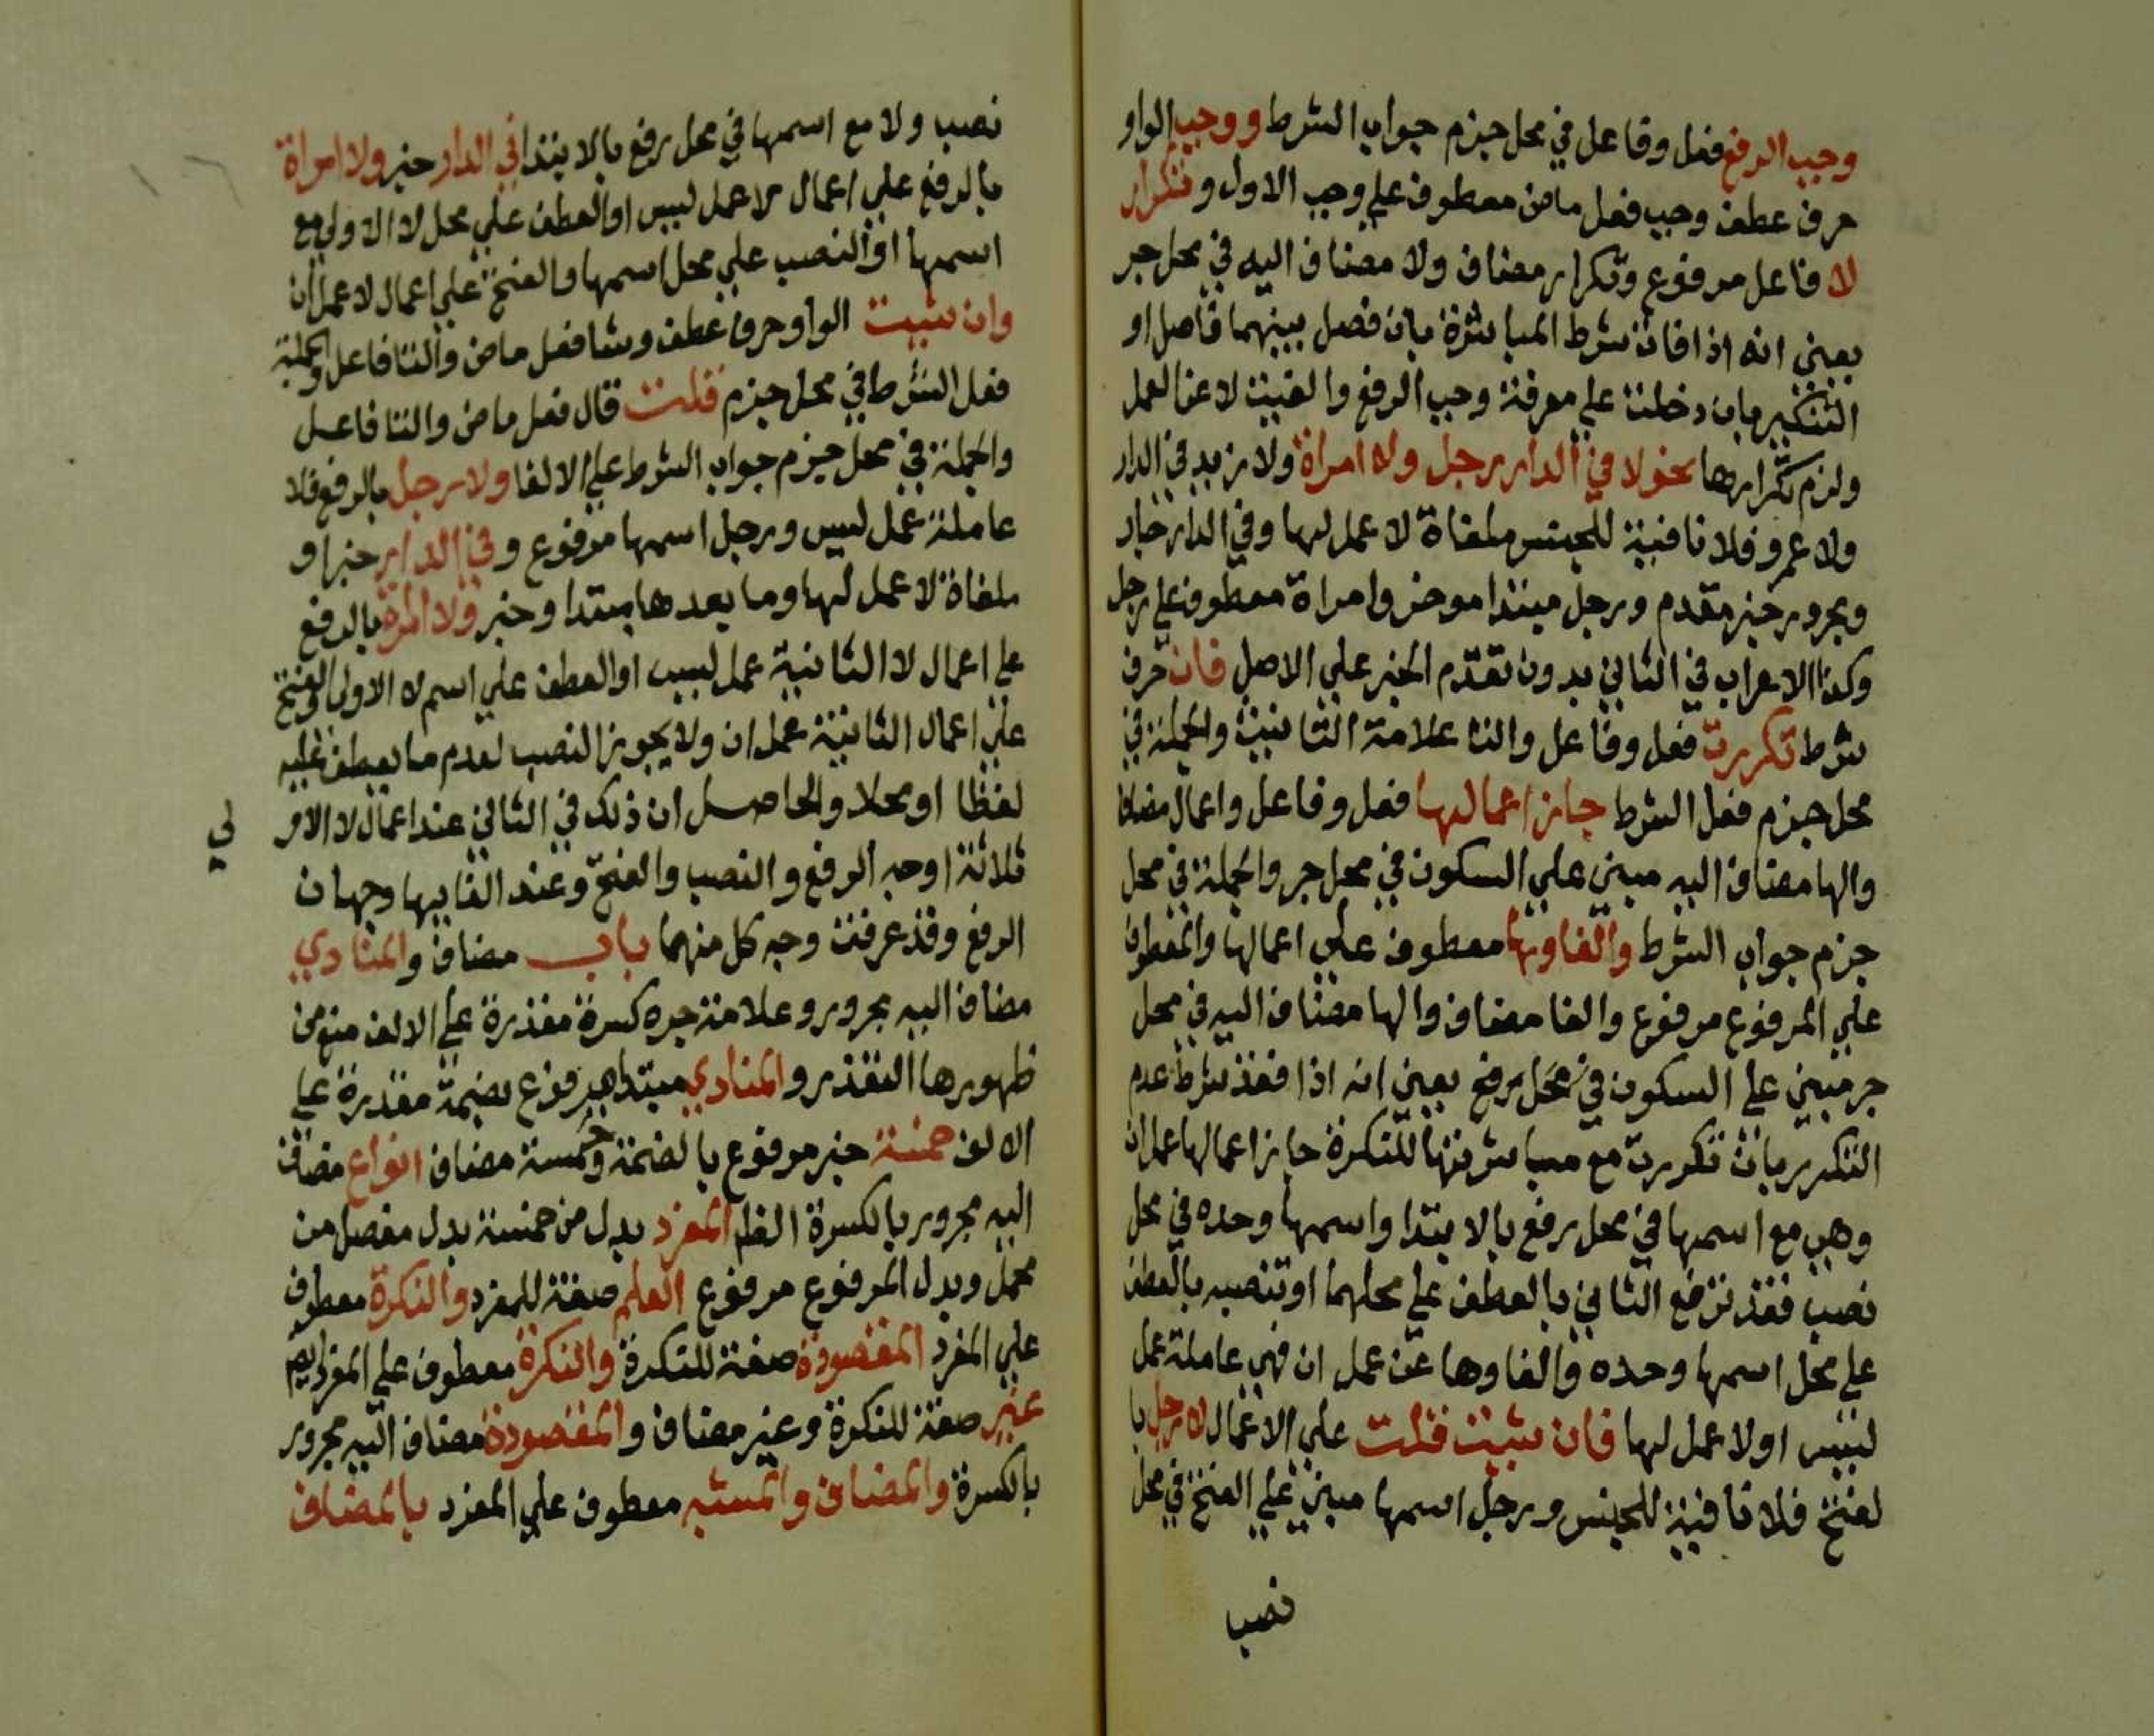 وجب الرفع ففعل وفاعل في محل جزم جواب الشرط ووجب الواو
حرف عطف وجب فعل ماض معطوف علي وجب الاول وتكرار
لا فاعل مرفوع وتكرار مضاف ولا مضاف اليه في محل جر
يعني انه اذا فات شرط المباشرة بان فصل بينهما فاصل او
التنكير بان دخلت علي معرفة وجب الرفع والغيت لا عن العمل
ولزم تكرارها نحو لا في الدار رجل ولا امراة ولا زيد في الدار
ولا عمرو فلا نافية للجنس ملغاة لا عمل لها وفي الدار جار
ومجرور خبر مقدم ورجل مبتدا موخر وامراة معطوف علي رجل
وكذا الاعراب في الثاني بدون تقدم الخبر علي الاصل فان حرف
شرط تكررت فعل وفاعل والتا علامة التانيث والجملة في
محل جزم فعل الشرط جاز اعمالها فعل وفاعل واعمال مضاف
والها مضاف اليه مبني علي السكون في محل جر والجملة في محل
جزم جواب الشرط والغاوها معطوف علي اعمالها والمعطوف
علي المرفوع مرفوع والغا مضاف والها مضاف اليه في محل
جر مبني علي السكون في محل رفع يعني انه اذا فقد شرط عدم
التكرير بان تكررت مع مباشرتها للنكرة جاز اعمالها عمل ان
وهي مع اسمها في محل رفع بالابتدا واسمها وحده في محل
نصب فقد ترفع الثاني بالعطف علي محلهما او تنصبه بالعطف
علي محل اسمها وحده والغاوها عن عمل ان فهي عاملة عمل
ليس او لا عمل لها فان شيت قلت علي الاعمال لا رجل با
لفتح فلا نافية للجنس ورجل اسمها مبني علي الفتح في محل
نصب
نصب ولا مع اسمها في محل رفع بالابتدا في الدار خبر ولا امراة
بالرفع علي اعمال لا عمل ليس او العطف علي محل لا الاولي مع
اسمها او النصب علي محل اسمها والفتح علي اعمال لا عمل ان
وان شيت الواو حرف عطف وشا فعل ماض والتا فاعل والجملة
فعل الشرط في محل جزم قلت قال فعل ماض والتا فاعل
والجملة في محل جزم جواب الشرط علي الالغا ولا رجل بالرفع فلا
عاملة عمل ليس ورجل اسمها مرفوع وفي الدار خبر او
ملغاة لا عمل لها وما بعدها مبتدا وخبر ولا امرة بالرفع
علي اعمال لا الثانية عمل ليس او العطف علي اسم لا الاولي والفتح
علي اعمال الثانية عمل ان ولا يجوز النصب لعدم ما يعطف عليه
لفظا او محلا والحاصل ان ذلك في الثاني عند اعمال لا الاو
لي
ثلاثة اوجه الرفع والنصب والفتح وعند الغايها وجهان
الرفع وقد عرفت وجه كل منهما باب مضاف والمنادي
مضاف اليه مجرور وعلامة جره كسرة مقدرة علي الالف منع من
ظهورها التعذر والمنادي مبتدا مرفوع بضمة مقدرة علي
الالف خمسة خبر مرفوع بالضمة وخمسة مضاف انواع مضاف
اليه مجرور بالكسرة الظا المفرد بدل من خمسة بدل مفصل من
مجمل وبدل المرفوع مرفوع العلم صفة للمفرد والنكرة معطوف
علي المفرد المقصودة صفة للنكرة والنكرة معطوف علي المفرد ايضا
غير صفة للنكرة وغير مضاف والمقصودة مضاف اليه مجرور
بالكسرة والمضاف والمشبه معطوف علي المفرد بالمضاف